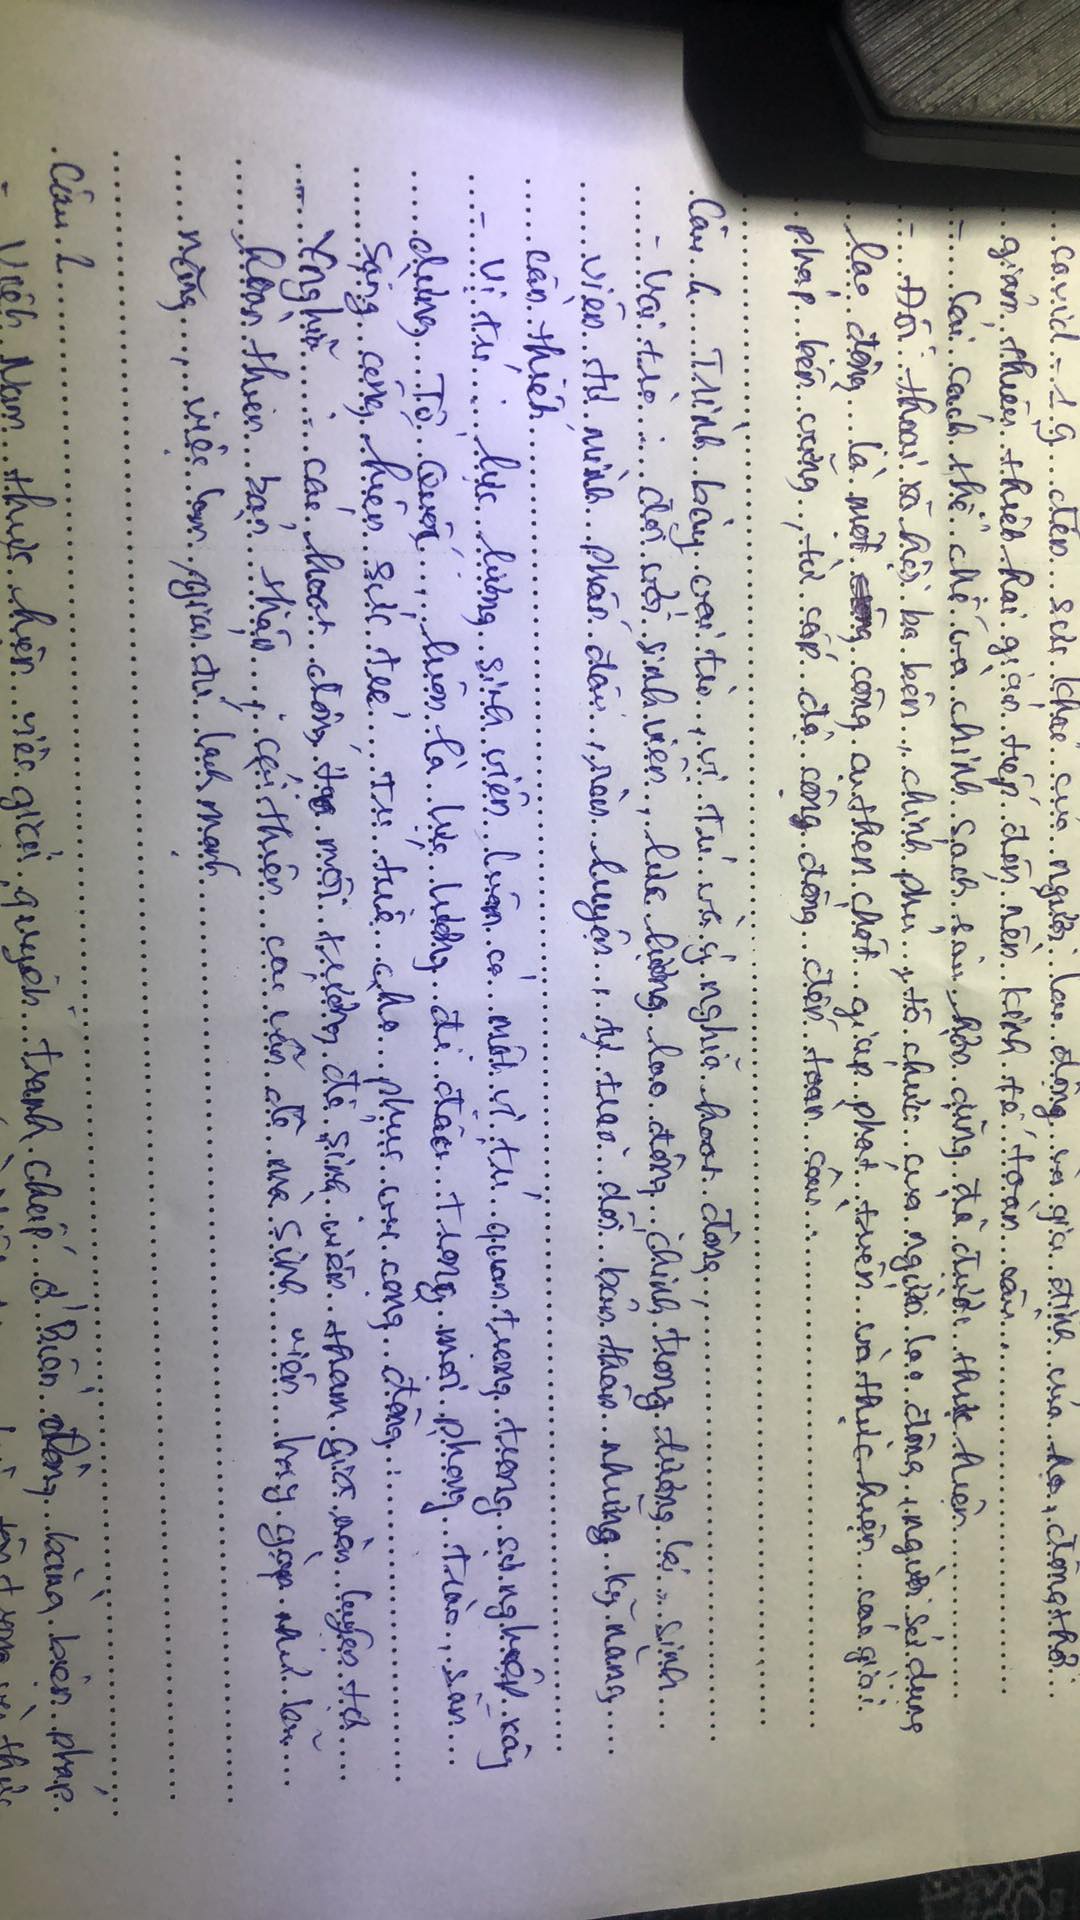 covid - 19 đến sức khoẻ của người lao động và gia đình của họ, đồng thời
giảm thiểu thiệt hại gián tiếp đến nền kinh tế toàn cầu.
- Cải cách thể chế và chính sách sâu hơn cũng đã được thực hiện
- Đối thoại xã hội ba bên, chính phủ, tổ chức của người lao động, người sử dụng
lao động là một công cụ then chốt giúp phát triển và thực hiện các giải
pháp bền vững, từ cấp độ cộng đồng đến toàn cầu.
Câu 4 Trình bày vai trò, vị trí và ý nghĩa hoạt động,
- Vai trò : đối với sinh viên, lực lượng lao động chính trong tương lai, sinh
viên tự mình phấn đấu, rèn luyện, tự trao dồi bản thân những kỹ năng
cần thiết
- Vị trí : lực lượng sinh viên luôn có một vị trí quan trọng trong sự nghiệp xây
dựng Tổ Quốc, luôn là lực lượng đi đầu trong mọi phong trào, sẵn
sàng cống hiến sức trẻ, trí tuệ cho phục vụ cộng đồng.
- Ý nghĩa : các hoạt động tạo môi trường để sinh viên tham gia rèn luyện
hoàn thiện bản thân, cải thiện các vấn đề mà sinh viên hay gặp như kĩ
năng, việc làm, giải trí lành mạnh
Câu 2
- Việt Nam thực hiện việc giải quyết tranh chấp ở Biển Đông bằng biện pháp
tôn trọng và thực